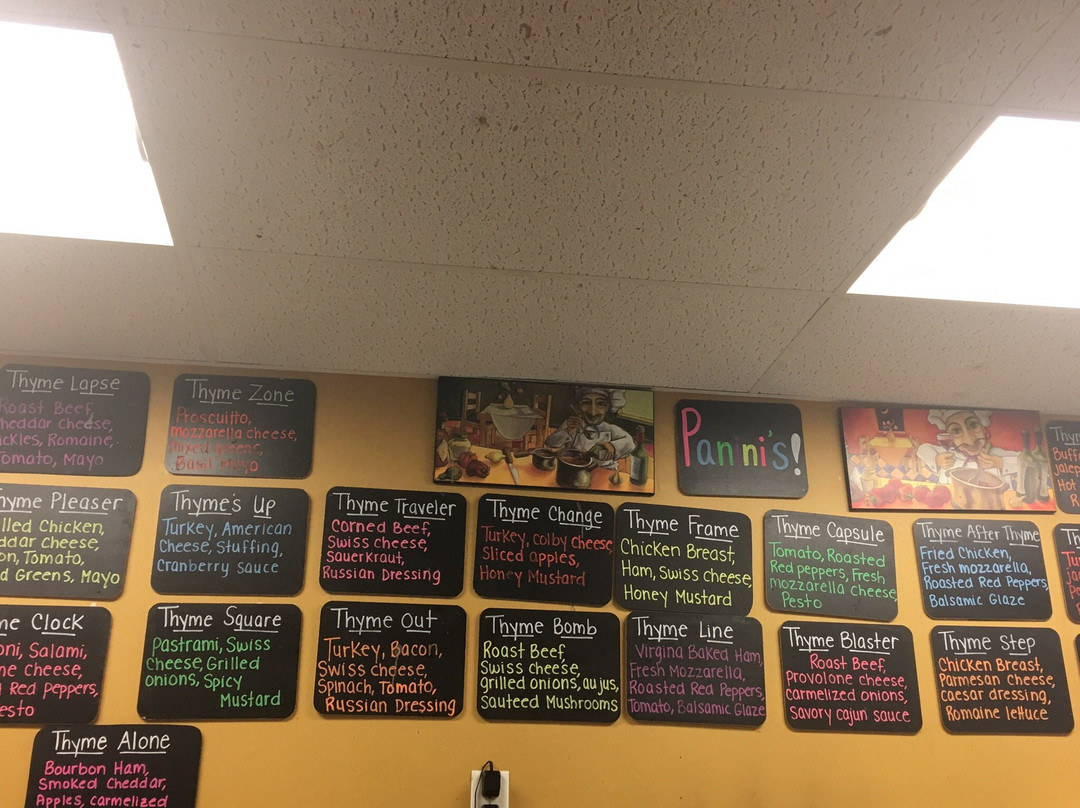 Thyme Lapse
Roast Beef,
cheddar cheese,
Romaine,
Tomato, Mayo
Thyme Zone
Proscuitto,
mozzarella cheese,
Mixed greens,
Basil Mayo
Panini's!
Buff
jalep
Hot
Thyme Pleaser
Chicken,
cheese,
Tomato,
Greens, Mayo
Thyme's Up
Turkey, American
Cheese, Stuffing,
Cranberry sauce
Thyme Traveler
Corned Beef,
Swiss cheese,
Sauerkraut,
Russian Dressing
Thyme Change
Turkey, colby cheese
Sliced apples,
Honey Mustard
Thyme Frame
Chicken Breast,
Ham, Swiss cheese,
Honey Mustard
Thyme Capsule
Tomato, Roasted
Red peppers, Fresh
mozzarella cheese,
Pesto
Thyme After Thyme
Fried Chicken,
Fresh mozzarella,
Roasted Red Peppers,
Balsamic Glaze
Clock
Salami,
cheese,
Red Peppers,
Thyme Square
Pastrami, Swiss
Cheese, Grilled
onions, Spicy
Mustard
Thyme Out
Turkey, Bacon,
Swiss cheese,
Spinach, Tomato,
Russian Dressing
Thyme Bomb
Roast Beef,
Swiss cheese,
grilled onions, au jus,
Sauteed Mushrooms
Thyme Line
Virgina Baked Ham,
Fresh Mozzarella,
Roasted Red Peppers,
Tomato, Balsamic Glaze
Thyme Blaster
Roast Beef,
provolone cheese,
carmelized onions,
savory cajun sauce
Thyme Step
Chicken Breast,
Parmesan cheese,
caesar dressing,
Romaine lettuce
Thyme Alone
Bourbon Ham,
Smoked Cheddar,
Apples, carmelized